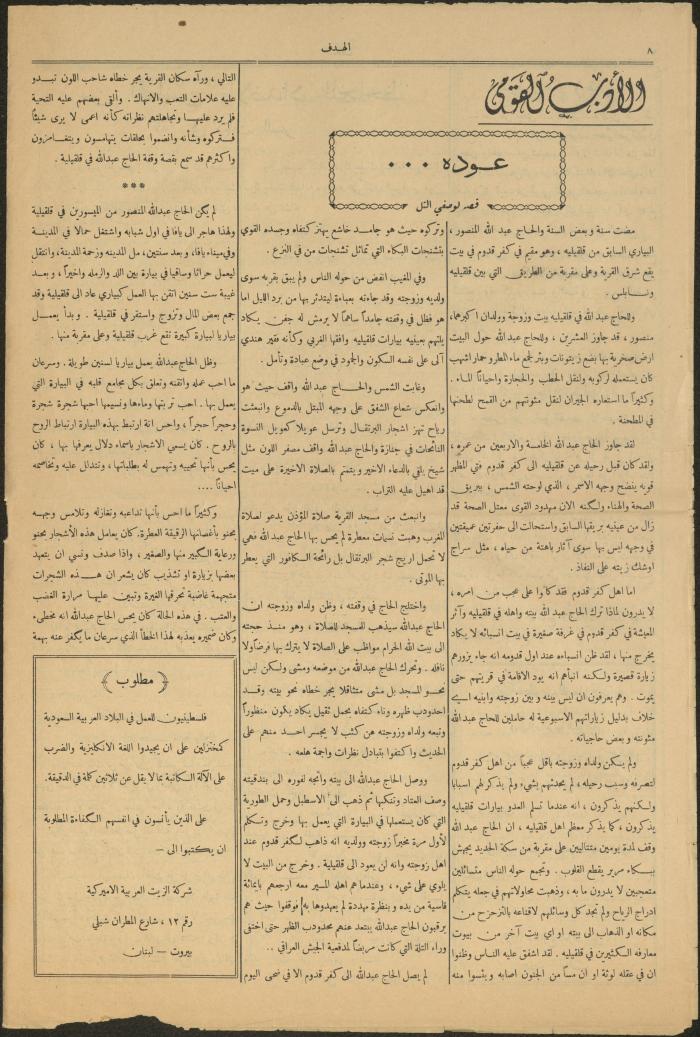 ٨
الهدف
الأدب القومي
عوده ...
قصه لوصفي التل
مضت سنة وبعض السنة والحاج عبد الله المنصور،
البياري السابق من قلقيليه، وهو مقيم في كفر قدوم في بيت
يقع شرق القرية وعلى مقربة من الطريق التي بين قلقيليه
ونابلس.
وللحاج عبد الله في قلقيليه بيت وزوجة وولدان اكبرهما،
منصور، قد جاوز العشرين، وللحاج عبد الله حول البيت
ارض صخرية بها بضع زيتونات وبئر لجمع ماء المطر وحمار اشهب
كان يستعمله لركوبه ولنقل الحطب والحجارة واحيانا الماء.
وكثيراً ما استعاره الجيران لنقل مئونتهم من القمح لطحنها
في المطحنة.
لقد جاوز الحاج عبد الله الخامسة والاربعين من عمره،
ولقد كان قبل رحيله عن قلقيليه الى كفر قدوم فتي المظهر
قويه ينضح وجهه الاسمر، الذي لوحته الشمس، ببريق
الصحة والهناء ولكنه الان مهدود القوى معتل الصحة قد
زال من عينيه بريقها السابق واستحالت الى حفرتين عميقتين
في وجهه ليس بها سوى آثار باهتة من حياه، مثل سراج
اوشك زيته على النفاذ.
اما اهل كفر قدوم فقد كانوا على عجب من امره،
لا يدرون لماذا ترك الحاج عبد الله بيته واهله في قلقيليه وآثر
المعيشة في كفر قدوم في غرفة صغيرة في بيت انسبائه لا يكاد
يخرج منها، لقد ظن انسباءه عند اول قدومه انه جاء يزورهم
زيارة قصيرة ولكنه انبأهم انه يود الاقامة في قريتهم حتى
يموت. وهم يعرفون ان ليس بينه و بين زوجته وابنيه اي
خلاف بدليل زياراتهم الاسبوعية له حاملين للحاج عبد الله
مئونته و بعض حاجياته.
ولم يكن ولداه وزوجته باقل عجباً من اهل كفر قدوم
لتصرفه وسبب رحيله، لم يحدثهم بشيء ولم يذكر لهم اسبابا
ولكنهم يذكرون، انه عندما تسلم العدو بيارات قلقيليه
يذكرون، كما يذكر معظم اهل قلقيليه، ان الحاج عبد الله
وقف لمدة يومين متتاليين على مقربة من سكة الحديد يجهش
ببكاء مرير يقطع القلوب. وتجمع حوله الناس متسائلين
متعجبين لا يدرون ما به، وذهبت محاولاتهم في جعله يتكلم
ادراج الرياح ولم تجد كل وسائلهم لاقناعه بالتزحزح من
مكانه او الذهاب الى بيته او اي بيت آخر من بيوت
معارفه الكثيرين في قلقيليه. لقد اشفق عليه الناس وظنوا
ان في عقله لوثة او ان مساً من الجنون اصابه ويئسوا منه
وتركوه حيث هو جامد خاشع يهتز كتفاه وجسده القوي
بتشنجات البكاء التي تماثل تشنجات من في النزع.
وفي المغيب انفض من حوله الناس ولم يبق بقربه سوى
ولديه وزوجته وقد جاءته بعباءة ليتدثر بها من برد الليل اما
هو فظل في وقفته جامداً ساهماً لا يرمش له جفن يكاد
يلتهم بعينيه بيارات قلقيليه وافقها الغربي وكأنه فقير هندي
آلى على نفسه السكون والجمود في وضع عبادة وتأمل.
وغابت الشمس والحاج عبد الله واقف حيث هو
وانعكس شعاع الشفق على وجهه المبتل بالدموع وانبعثت
رياح تهز اشجار البرتقال وترسل عويلا كعويل النسوة
النائحات في جنازة والحاج عبد الله واقف مصفر اللون مثل
شيخ يلقي بالدعاء الاخير ويتمتم بالصلاة الاخيرة على ميت
قد اهيل عليه التراب.
وانبعث من مسجد القرية صلاة المؤذن يدعو لصلاة
المغرب وهبت نسمات معطرة لم يحس بها الحاج عبد الله فهي
لا تحمل اريج شجر البرتقال بل رائحة الكافور التي يعطر
بها الموتى.
واختلج الحاج في وقفته، وظن ولداه وزوجته ان
الحاج عبد الله سيذهب للمسجد للصلاة، وهو منذ حجته
الى بيت الله الحرام مواظب على الصلاة لا يترك بها فرضاً ولا
نافله. وتحرك الحاج عبد الله من موضعه ومشى ولكن ليس
نحو المسجد بل مشى متثاقلا يجر خطاه نحو بيته وقد
احدودب ظهره وناء كتفاه بحمل ثقيل يكاد يكون منظوراً
وتبعه ولداه وزوجته عن كثب لا يجسر احد منهم على
الحديث واكتفوا بتبادل نظرات واجمة هلعه.
ووصل الحاج عبد الله الى بيته واتجه لفوره الى بندقيته
وصف العتاد وتنكبها ثم ذهب الى الاسطبل وحمل الطورية
التي كان يستعملها في البيارة التي يعمل بها وخرج وتكلم
لأول مرة مخبراً زوجته وولديه انه ذاهب لكفر قدوم عند
اهل زوجته وانه لن يعود الى قلقيلية. وخرج من البيت لا
يلوي على شيء، وعندما هم اهله المسير معه ارجعهم بايمائة
قاسية من يده و بنظرة مهددة لم يعهدوها به فوقفوا حيث هم
يرقبون الحاج عبد الله يبتعد عنهم محدودب الظهر حتى اختفى
وراء التلة التي كانت مربضاً لمدفعية الجيش العراقي ..
لم يصل الحاج عبد الله الى كفر قدوم الا في ضحى اليوم
التالي، ورآه سكان القرية يجر خطاه شاحب اللون تبدو
عليه علامات التعب والانهاك. وألقى بعضهم عليه التحية
فلم يرد عليها وتجاهلتهم نظراته كأنه اعمى لا يرى شيئاً
فتركوه وشأنه وانضموا بحلقات يتهامسون ويتغامزون
واكثرهم قد سمع بقصة وقفة الحاج عبد الله في قلقيلية.
***
لم يكن الحاج عبد الله المنصور من الميسورين في قلقيلية
ولهذا هاجر الى يافا في اول شبابه واشتغل حمالا في المدينة
وفي ميناء يافا، وبعد سنتين، مل المدينه وزحمة المدينة، وانتقل
ليعمل حراثا وساقيا في بيارة بين اللد والرمله واخيراً، وبعد
غيبة ست سنين اتقن بها العمل كبياري عاد الى قلقيلية وقد
جمع بعض المال وتزوج واستقر في قلقيلية. و بدأ يعمل
بياريا لبيارة كبيرة تقع غرب قلقيلية وعلى مقربة منها.
وظل الحاج عبد الله يعمل بياريا لسنين طويلة. وسرعان
ما احب عمله واتقنه وتعلق بكل مجامع قلبه في البيارة التي
يعمل بها. احب تربتها وماءها ونسيمها احبها شجرة شجرة
وحجراً حجراً، واحس انة ارتبط بهذه البيارة ارتباط الروح
بالروح. كان يسمي الاشجار باسماء دلال يعرفها بها، كان
يحس بأنها تحييه وتهمس له بطلباتها، وتتدلل عليه وتخاصمه
احياناً ....
وكثيراً ما احس بأنها تداعبه وتغازله وتلامس وجهه
بحنو بأغصانها الرقيقة العطرة. كان يعامل هذه الأشجار بحنو
ورعاية الكبير منها والصغير، واذا صدف ونسي ان يتعهد
بعضها بزيارة او تشذيب كان يشعر ان هذه الشجرات
متجهمة غاضبة تحرقها الغيرة وتبين عليها مرارة الغضب
والعتب. في هذه الحالة كان يحس الحاج عبد الله انه مخطىء
وكان ضميره يعذبه لهذا الخطأ الذي سرعان ما يكفر عنه بهمة
﴿ مطلوب ﴾
فلسطينيون للعمل في البلاد العربية السعودية
كمختزلين على ان يجيدوا اللغة الانكليزية والضرب
على الآلة الكاتبة بما لا يقل عن ثلاثين كلمة في الدقيقة.
على الذين يأنسون في انفسهم الكفاءة المطلوبة
ان يكتبوا الى —
شركة الزيت العربية الاميركية
رقم ١٢، شارع المطران شبلي
بيروت — لبنان